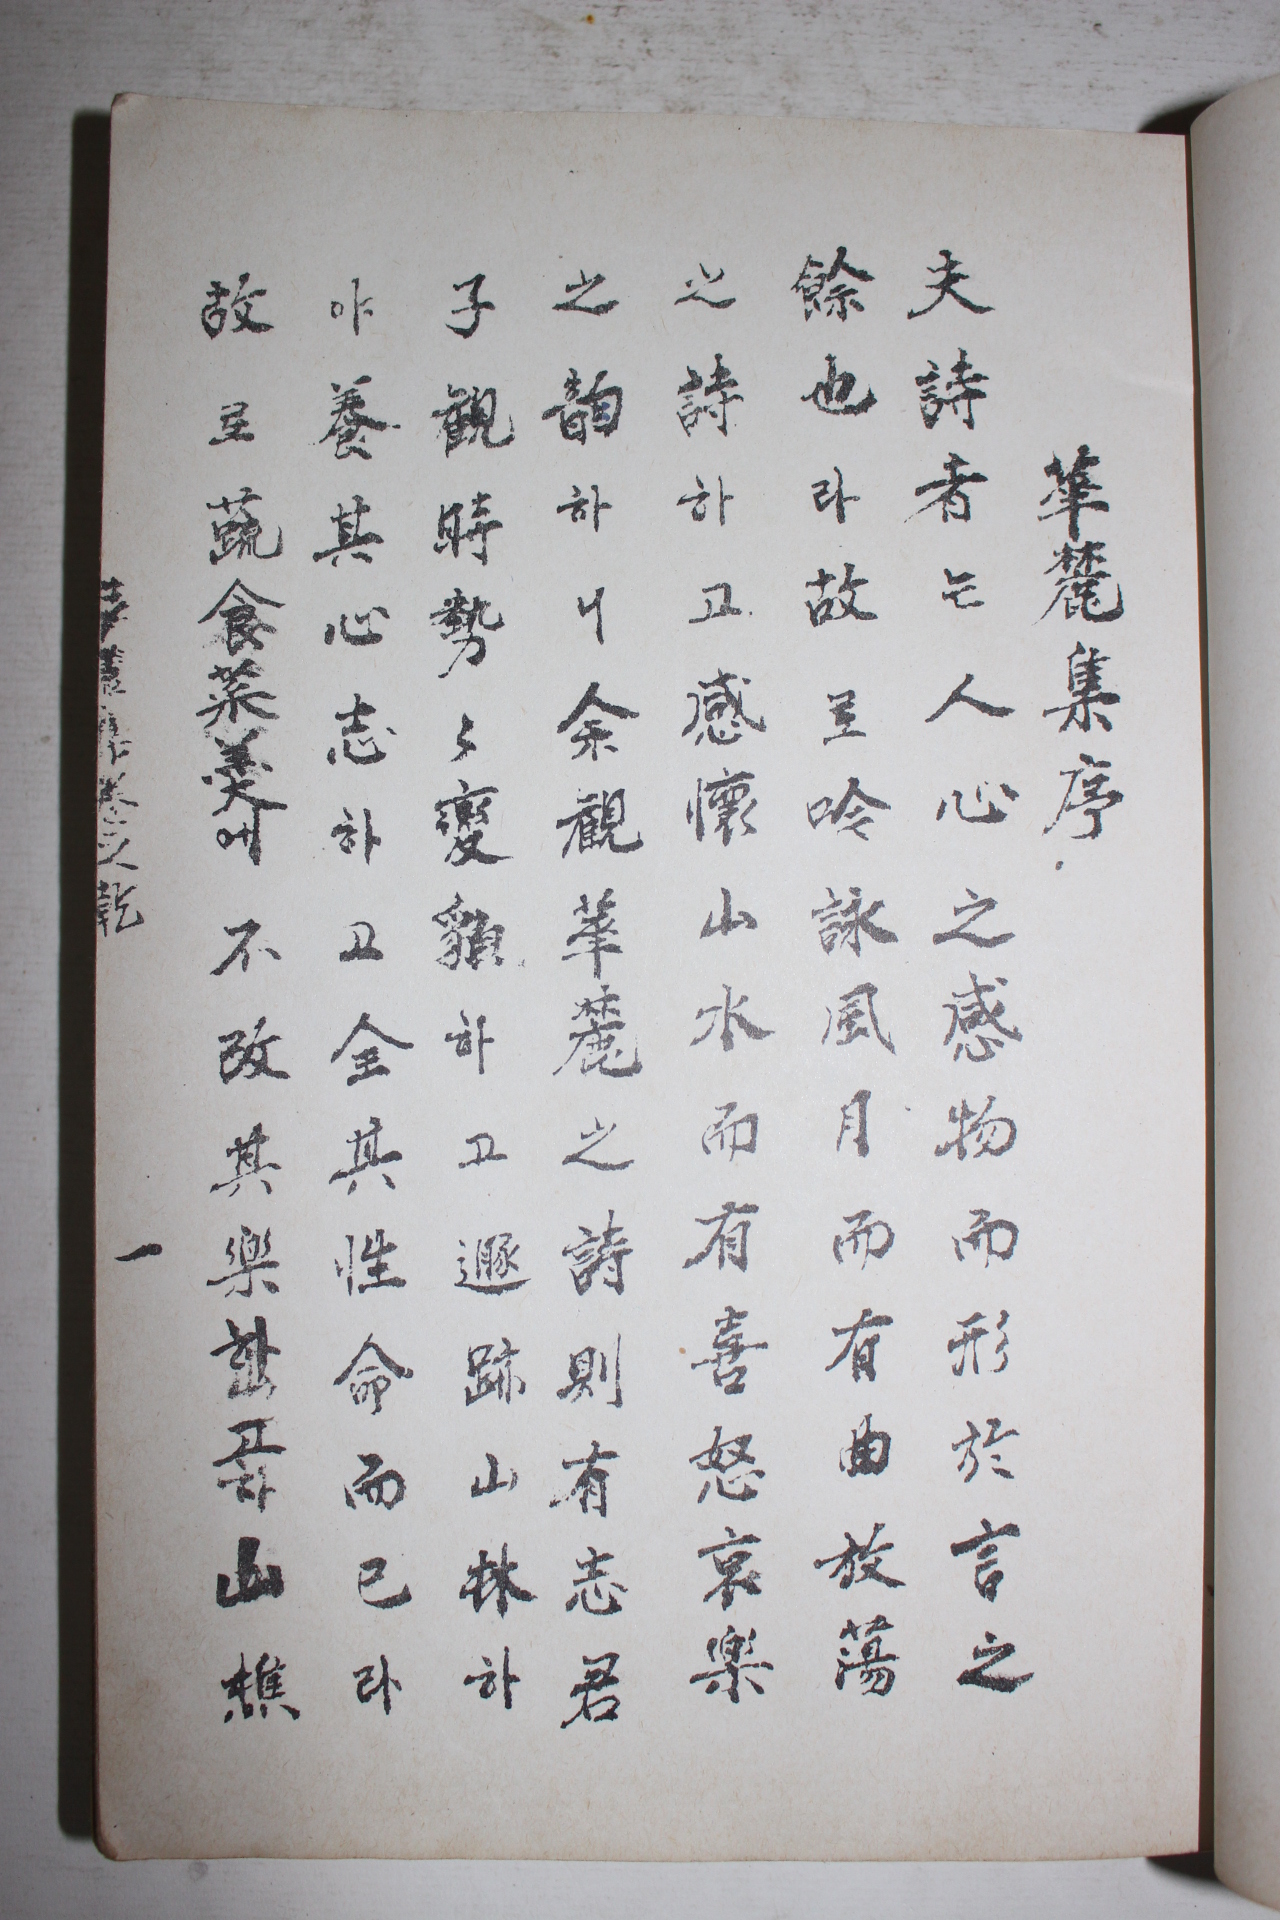 華麓集序
夫詩者는人心之感物而形於言之
餘也라故로吟詠風月而有曲放蕩
之詩하고感懷山水而有喜怒哀樂
之韵하니余觀華麓之詩則有志君
子觀時勢々變䫉하고遯跡山林하
야養其心志하고全其性命而已라
故로蔬食菜羹에不改其樂山樵
卷之乾
一